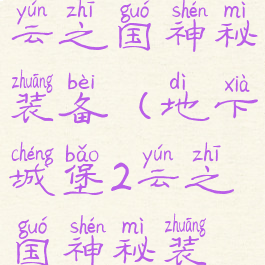 yún zhī guó shén mì
云之国神秘
zhuāng bèi dì xià
装备(地下
chéng bǎo yún zhī
城堡2云之
guó shén mì zhuāng
国神秘装